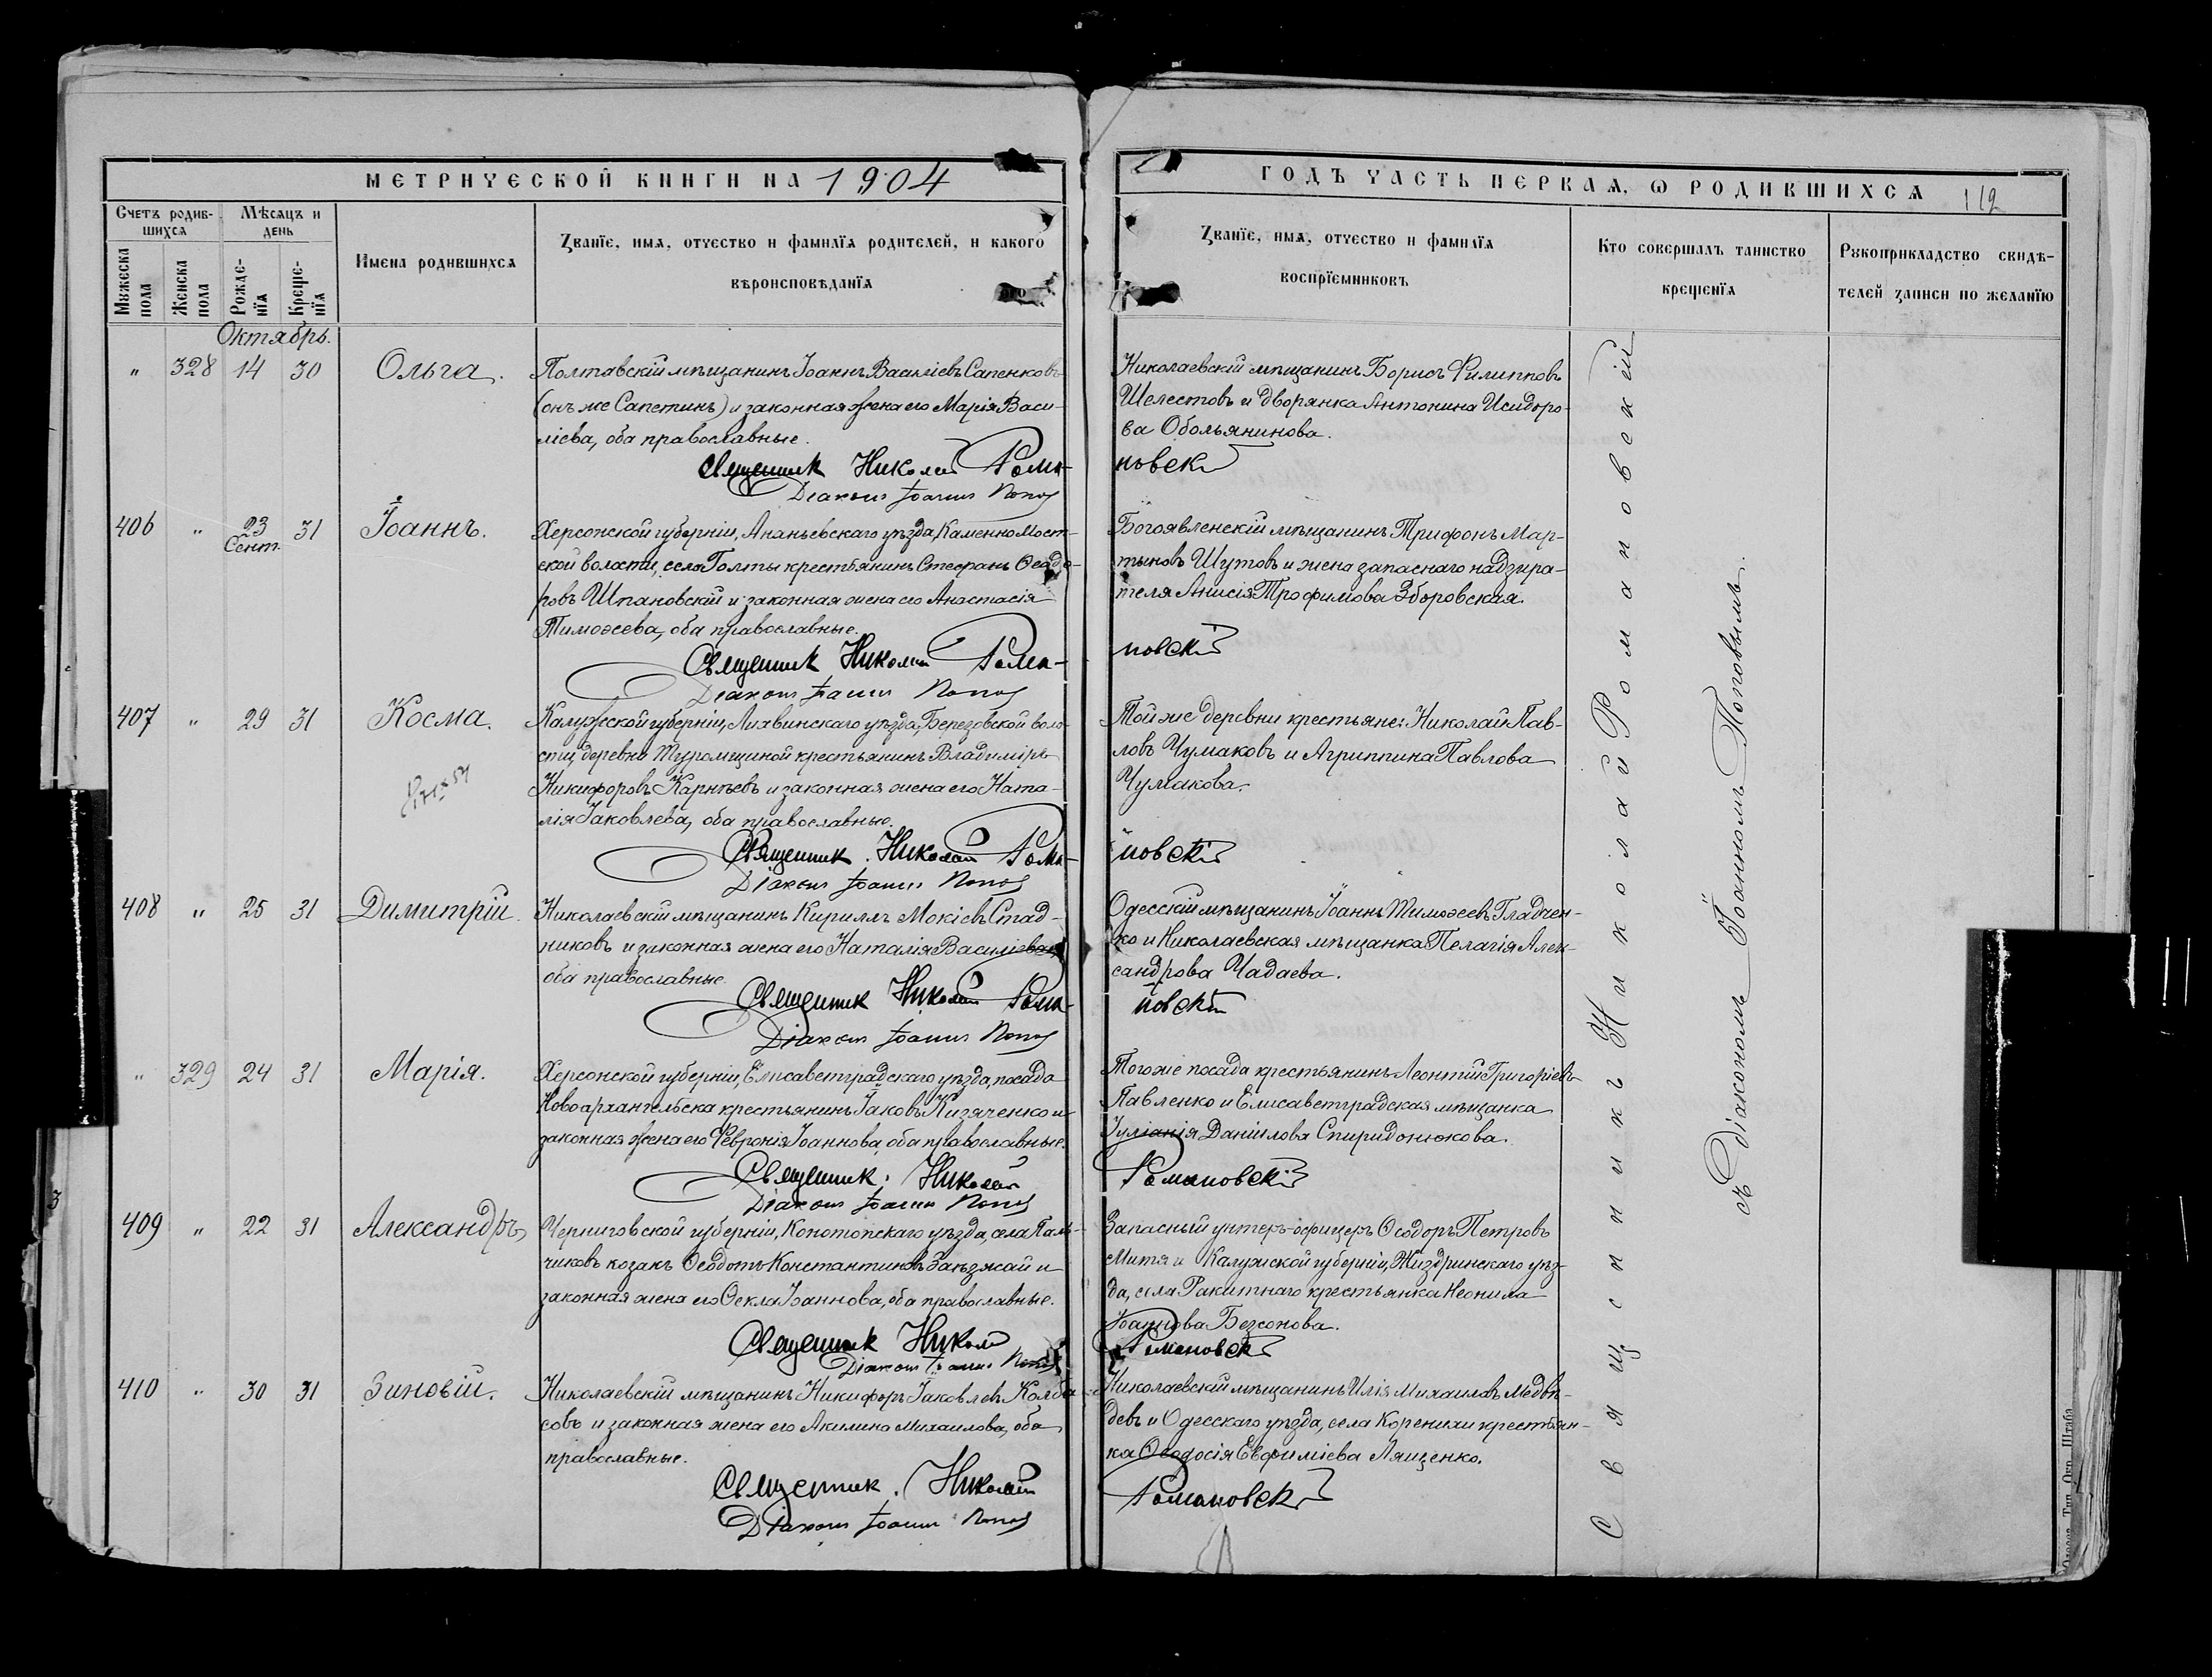 МЕТРИЧЕСКОЙ КНИГИ НА 1904
ГОДЪ ЧАСТЬ ПЕРВАЯ, Ѡ РОДИВШИХСЯ 112
Счетъ родив-
шихся
Мѣсяцъ и
день
Мужеска
пола
Женска
пола
Рожде-
нїя
Креще-
нїя
Имена родившихся
Званїе, имя, отчество и фамилїя родителей, и какого
вѣроисповѣданїя
Званїе, имя, отчество и фамилїя
воспрїемниковъ
Кто совершалъ таинство
крещенїя
Рукоприкладство свидѣ-
телей записи по желанїю
Октябрь.
" 328 14 30 Ольга.
Полтавскій мѣщанинъ Іоаннъ Василіевъ Сапенковъ
(онъ же Сапетинъ) и законная жена его Марія Васи-
ліева, оба православные.
Священник Николай Рома-
Діакон Іоанн Попов
Николаевскій мѣщанинъ Борисъ Филипповъ
Шелестовъ и дворянка Антонина Исидоро-
ва Обольянинова.
новскій
406 " 23 31 Іоаннъ.
Сент.
Херсонской губерніи, Ананьевскаго уѣзда, Каменно Мост-
ской волости, села Голты крестьянинъ Стефанъ Ѳеодо-
ровъ Шпановскій и законная жена его Анастасія
Тимоѳеева, оба православные.
Священник Николай Рома-
Діакон Іоанн Попов
Богоявленскій мѣщанинъ Трифонъ Мар-
тыновъ Шутовъ и жена запаснаго надзира-
теля Анисія Трофимова Зборовская.
новскій
407 " 29 31 Косма.
Калужской губерніи, Лихвинскаго уѣзда, Березовской воло-
сти, деревни крестьянинъ Владиміръ
Никифоровъ Карнѣевъ и законная жена его Ната-
лія Іаковлева, оба православные.
Священник Николай Рома-
Діакон Іоанн Попов
Той же деревни крестьяне: Николай Пав-
ловъ Чумаковъ и Агриппина Павлова
Чумакова.
новскій
408 " 25 31 Димитрій.
Николаевскій мѣщанинъ Кириллъ Мокіевъ Стад-
никовъ и законная жена его Наталія Василіева,
оба православные.
Священник Николай Рома-
Діакон Іоанн Попов
Одесскій мѣщанинъ Іоаннъ Тимоѳеевъ Гладчен-
ко и Николаевская мѣщанка Пелагія Алек-
сандрова Чадаева.
новскій
" 329 24 31 Марія.
Херсонской губерніи, Елисаветградскаго уѣзда, посада
Новоархангельска крестьянинъ Іаковъ Кизяченко и
законная жена его Февронія Іоаннова, оба православные.
Священник Николай
Діакон Іоанн Попов
Того же посада крестьянинъ Леонтій Григоріевъ
Павленко и Елисаветградская мѣщанка
Іуліанія Даніилова Спиридонюкова.
Романовскій
409 " 22 31 Александръ.
Черниговской губерніи, Конотопскаго уѣзда, села Паль-
чиковъ козакъ Ѳеодотъ Константиновъ Заѣзжай и
законная жена его Ѳекла Іоаннова, оба православные.
Священник Николай
Діакон Іоанн Попов
Запасный унтеръ-офицеръ Ѳеодоръ Петровъ
Митя и Калужской губерніи, Жиздринскаго уѣз-
да, села Ракитнаго крестьянка Неонила
Іоаннова Безсонова.
Романовскій
410 " 30 31 Зиновій.
Николаевскій мѣщанинъ Никифоръ Іаковлевъ Колба-
совъ и законная жена его Акилина Михаилова, оба
православные.
Священник Николай
Діакон Іоанн Попов
Николаевскій мѣщанинъ Илія Михаиловъ Медвѣ-
девъ и Одесскаго уѣзда, села Коренихи крестьян-
ка Ѳеодосія Евфиміева Лященко.
Романовскій
Священникъ Николай Романовскій
съ діакономъ Іоанномъ Поповымъ.
Одесса. Тип. Окр. Штаба